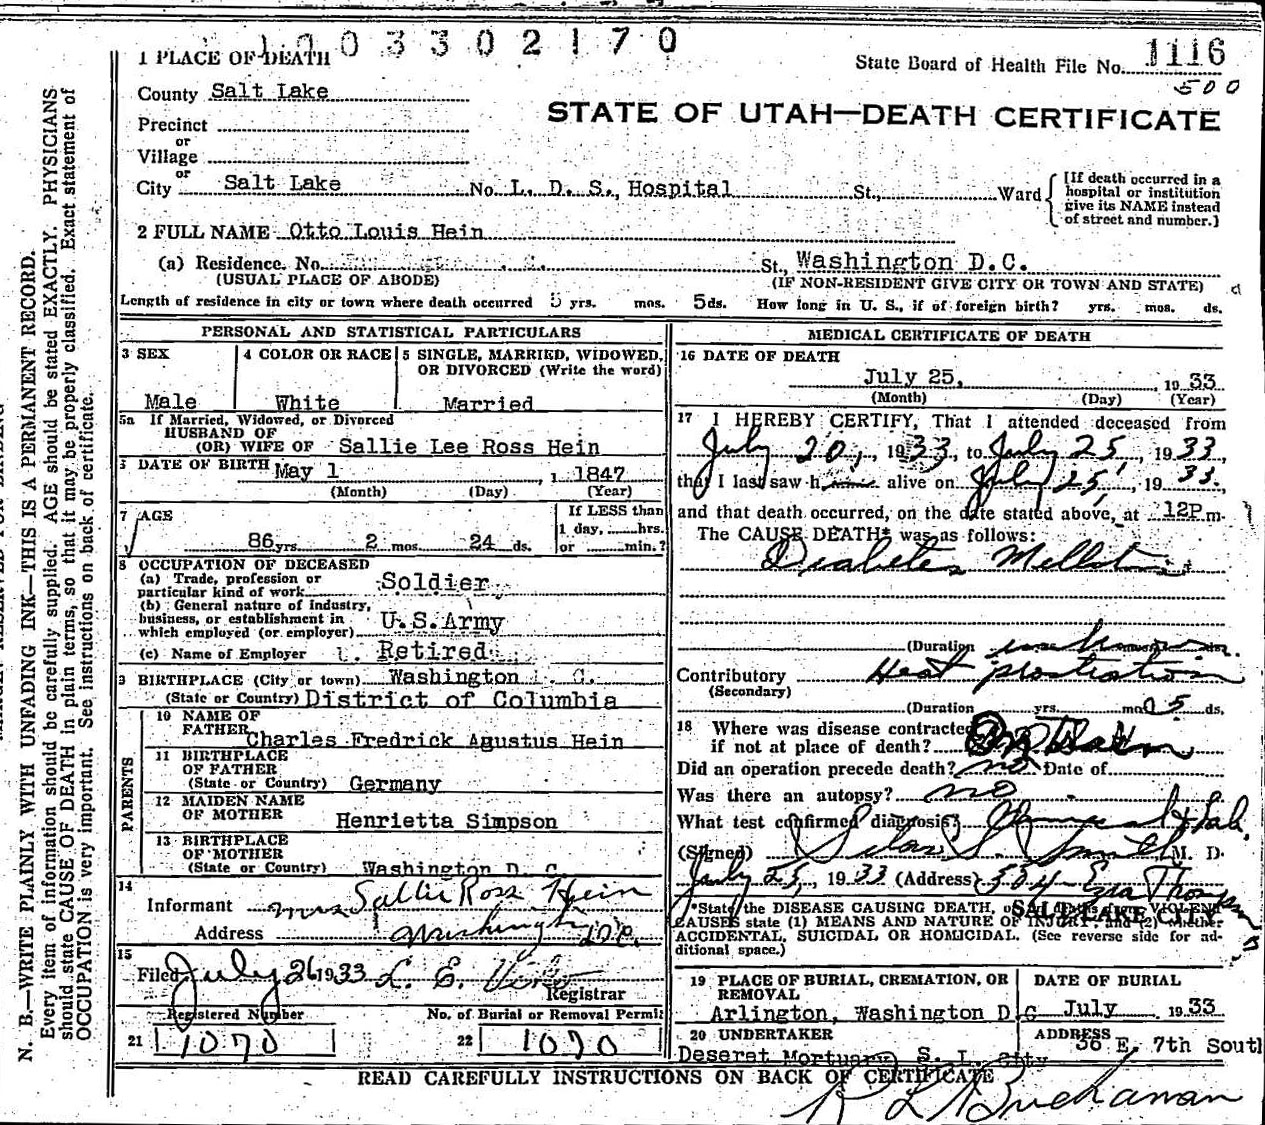 1003302170
1 PLACE OF DEATH
State Board of Health File No. 1116
500
County Salt Lake
STATE OF UTAH—DEATH CERTIFICATE
Precinct
or
Village
or
City Salt Lake No. L. D. S. Hospital St., Ward
[If death occurred in a hospital or institution give its NAME instead of street and number.]
2 FULL NAME Otto Louis Hein
(a) Residence. No. St., Washington D.C.
(USUAL PLACE OF ABODE) (IF NON-RESIDENT GIVE CITY OR TOWN AND STATE)
Length of residence in city or town where death occurred yrs. mos. 5 ds. How long in U. S., if of foreign birth? yrs. mos. ds.
PERSONAL AND STATISTICAL PARTICULARS
3 SEX
Male
4 COLOR OR RACE
White
5 SINGLE, MARRIED, WIDOWED,
OR DIVORCED (Write the word)
Married
5a If Married, Widowed, or Divorced
HUSBAND OF
(OR) WIFE OF Sallie Lee Ross Hein
DATE OF BIRTH May 1 , 1 1847
(Month) (Day) (Year)
7 AGE
86 yrs. 2 mos. 24 ds.
If LESS than
1 day, hrs.
or min.?
8 OCCUPATION OF DECEASED
(a) Trade, profession or
particular kind of work Soldier
(b) General nature of industry,
business, or establishment in
which employed (or employer) U.S.Army
(c) Name of Employer Retired
9 BIRTHPLACE (City or town) Washington
(State or Country) District of Columbia
PARENTS
10 NAME OF
FATHER Charles Fredrick Agustus Hein
11 BIRTHPLACE
OF FATHER
(State or Country) Germany
12 MAIDEN NAME
OF MOTHER Henrietta Simpson
13 BIRTHPLACE
OF MOTHER
(State or Country) Washington D C
14
Informant Mrs Sallie Ross Hein
Address Washington D.C.
15
Filed July 26 1933 L. E.
Registrar
Registered Number
21 1070
No. of Burial or Removal Permit
22 1070
MEDICAL CERTIFICATE OF DEATH
16 DATE OF DEATH
July 25, , 19 33
(Month) (Day) (Year)
17 I HEREBY CERTIFY, That I attended deceased from
July 20, , 1933, to July 25, 1933,
that I last saw h alive on July 25, 1933,
and that death occurred, on the date stated above, at 12P m.
The CAUSE DEATH* was as follows:
Diabetes Mellitus
(Duration unknown
Contributory Heat prostration
(Secondary)
(Duration yrs. mos 5 ds.
18 Where was disease contracted
if not at place of death?
Did an operation precede death? no Date of
Was there an autopsy? no
What test confirmed diagnosis? & Lab.
(Signed) Silas S. Smith M. D.
July 25, 1933 (Address) 504 Ezra Thompson
SALT LAKE CITY
*State the DISEASE CAUSING DEATH, or VIOLENT
CAUSES state (1) MEANS AND NATURE OF INJURY; and (2) whether
ACCIDENTAL, SUICIDAL OR HOMICIDAL. (See reverse side for ad-
ditional space.)
19 PLACE OF BURIAL, CREMATION, OR
REMOVAL
Arlington, Washington D C
DATE OF BURIAL
July , 1933
20 UNDERTAKER
Deseret Mortuary S. L. City
ADDRESS
36 E. 7th South
READ CAREFULLY INSTRUCTIONS ON BACK OF CERTIFICATE
R L Buchanan
N. B.—WRITE PLAINLY WITH UNFADING INK—THIS IS A PERMANENT RECORD.
Every item of information should be carefully supplied. AGE should be stated EXACTLY. PHYSICIANS
should state CAUSE OF DEATH in plain terms, so that it may be properly classified. Exact statement of
OCCUPATION is very important. See instructions on back of certificate.